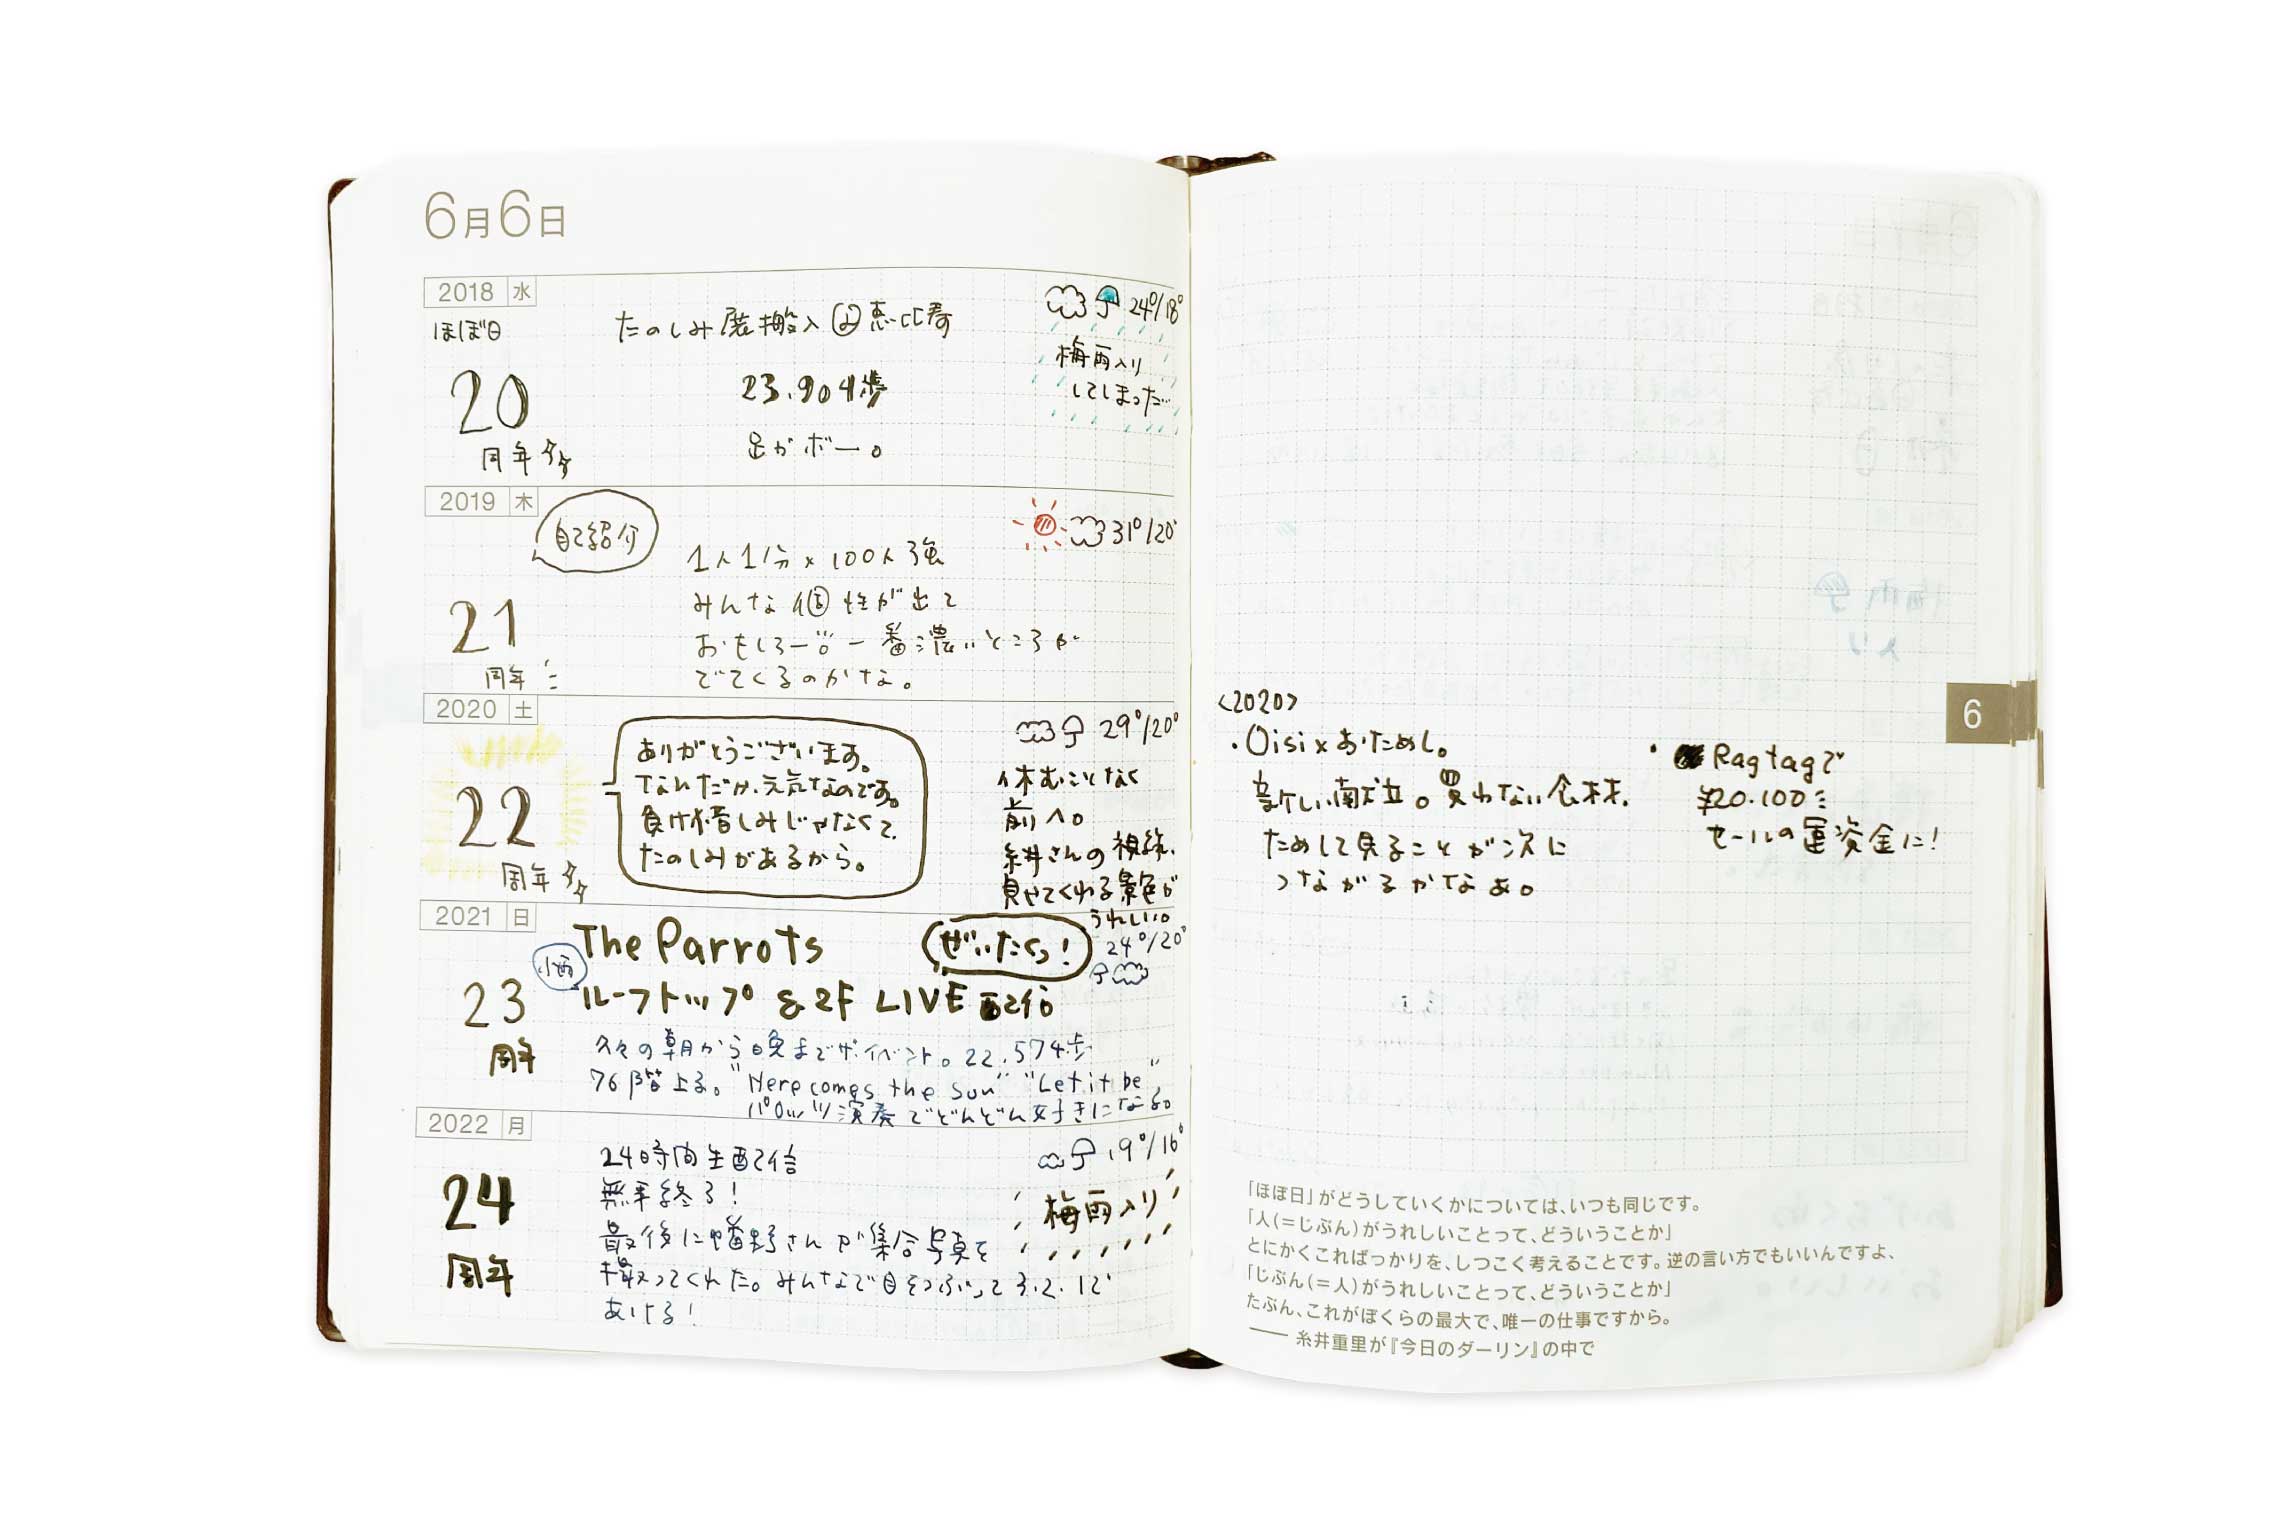 6月6日
2018 水
ほぼ日
20
周年
たのしみ展搬入@恵比寿
23.904歩
足がボー。
24°/18°
梅雨入り
してしまった…
2019 木
自己紹介
21
周年
1人1分×100人強
みんな個性が出て
おもしろー。一番濃いところが
でてくるのかな。
31°/20°
2020 土
22
周年
ありがとうございます。
なんだか、元気なのです。
負け惜しみじゃなくて、
たのしみがあるから。
29°/20°
休むことなく
前へ。
糸井さんの視線、
見せてくれる景色が
うれしい。
2021 日
23
周年
小西
The Parrots
ルーフトップ & 2F LIVE 配信
ぜいたくっ!
24°/20°
久々の朝から晩までザ・イベント。22.574歩
76階上る。"Here comes the sun" "Let it be",
パロッツ演奏でどんどん好きになる。
2022 月
24
周年
24時間生配信
無事終了!
最後に幡野さんが集合写真を
撮ってくれた。みんなで目をつぶって3.2.1で
あける!
19°/16°
梅雨入り
<2020>
・Oisixおためし。
新しい献立。買わない食材、
ためして見ることが次に
つながるかなぁ。
・Ragtagで
¥20.100
セールの軍資金に!
6
「ほぼ日」がどうしていくかについては、いつも同じです。
「人(=じぶん)がうれしいことって、どういうことか」
とにかくこればっかりを、しつこく考えることです。逆の言い方でもいいんですよ、
「じぶん(=人)がうれしいことって、どういうことか」
たぶん、これがぼくらの最大で、唯一の仕事ですから。
―― 糸井重里が『今日のダーリン』の中で